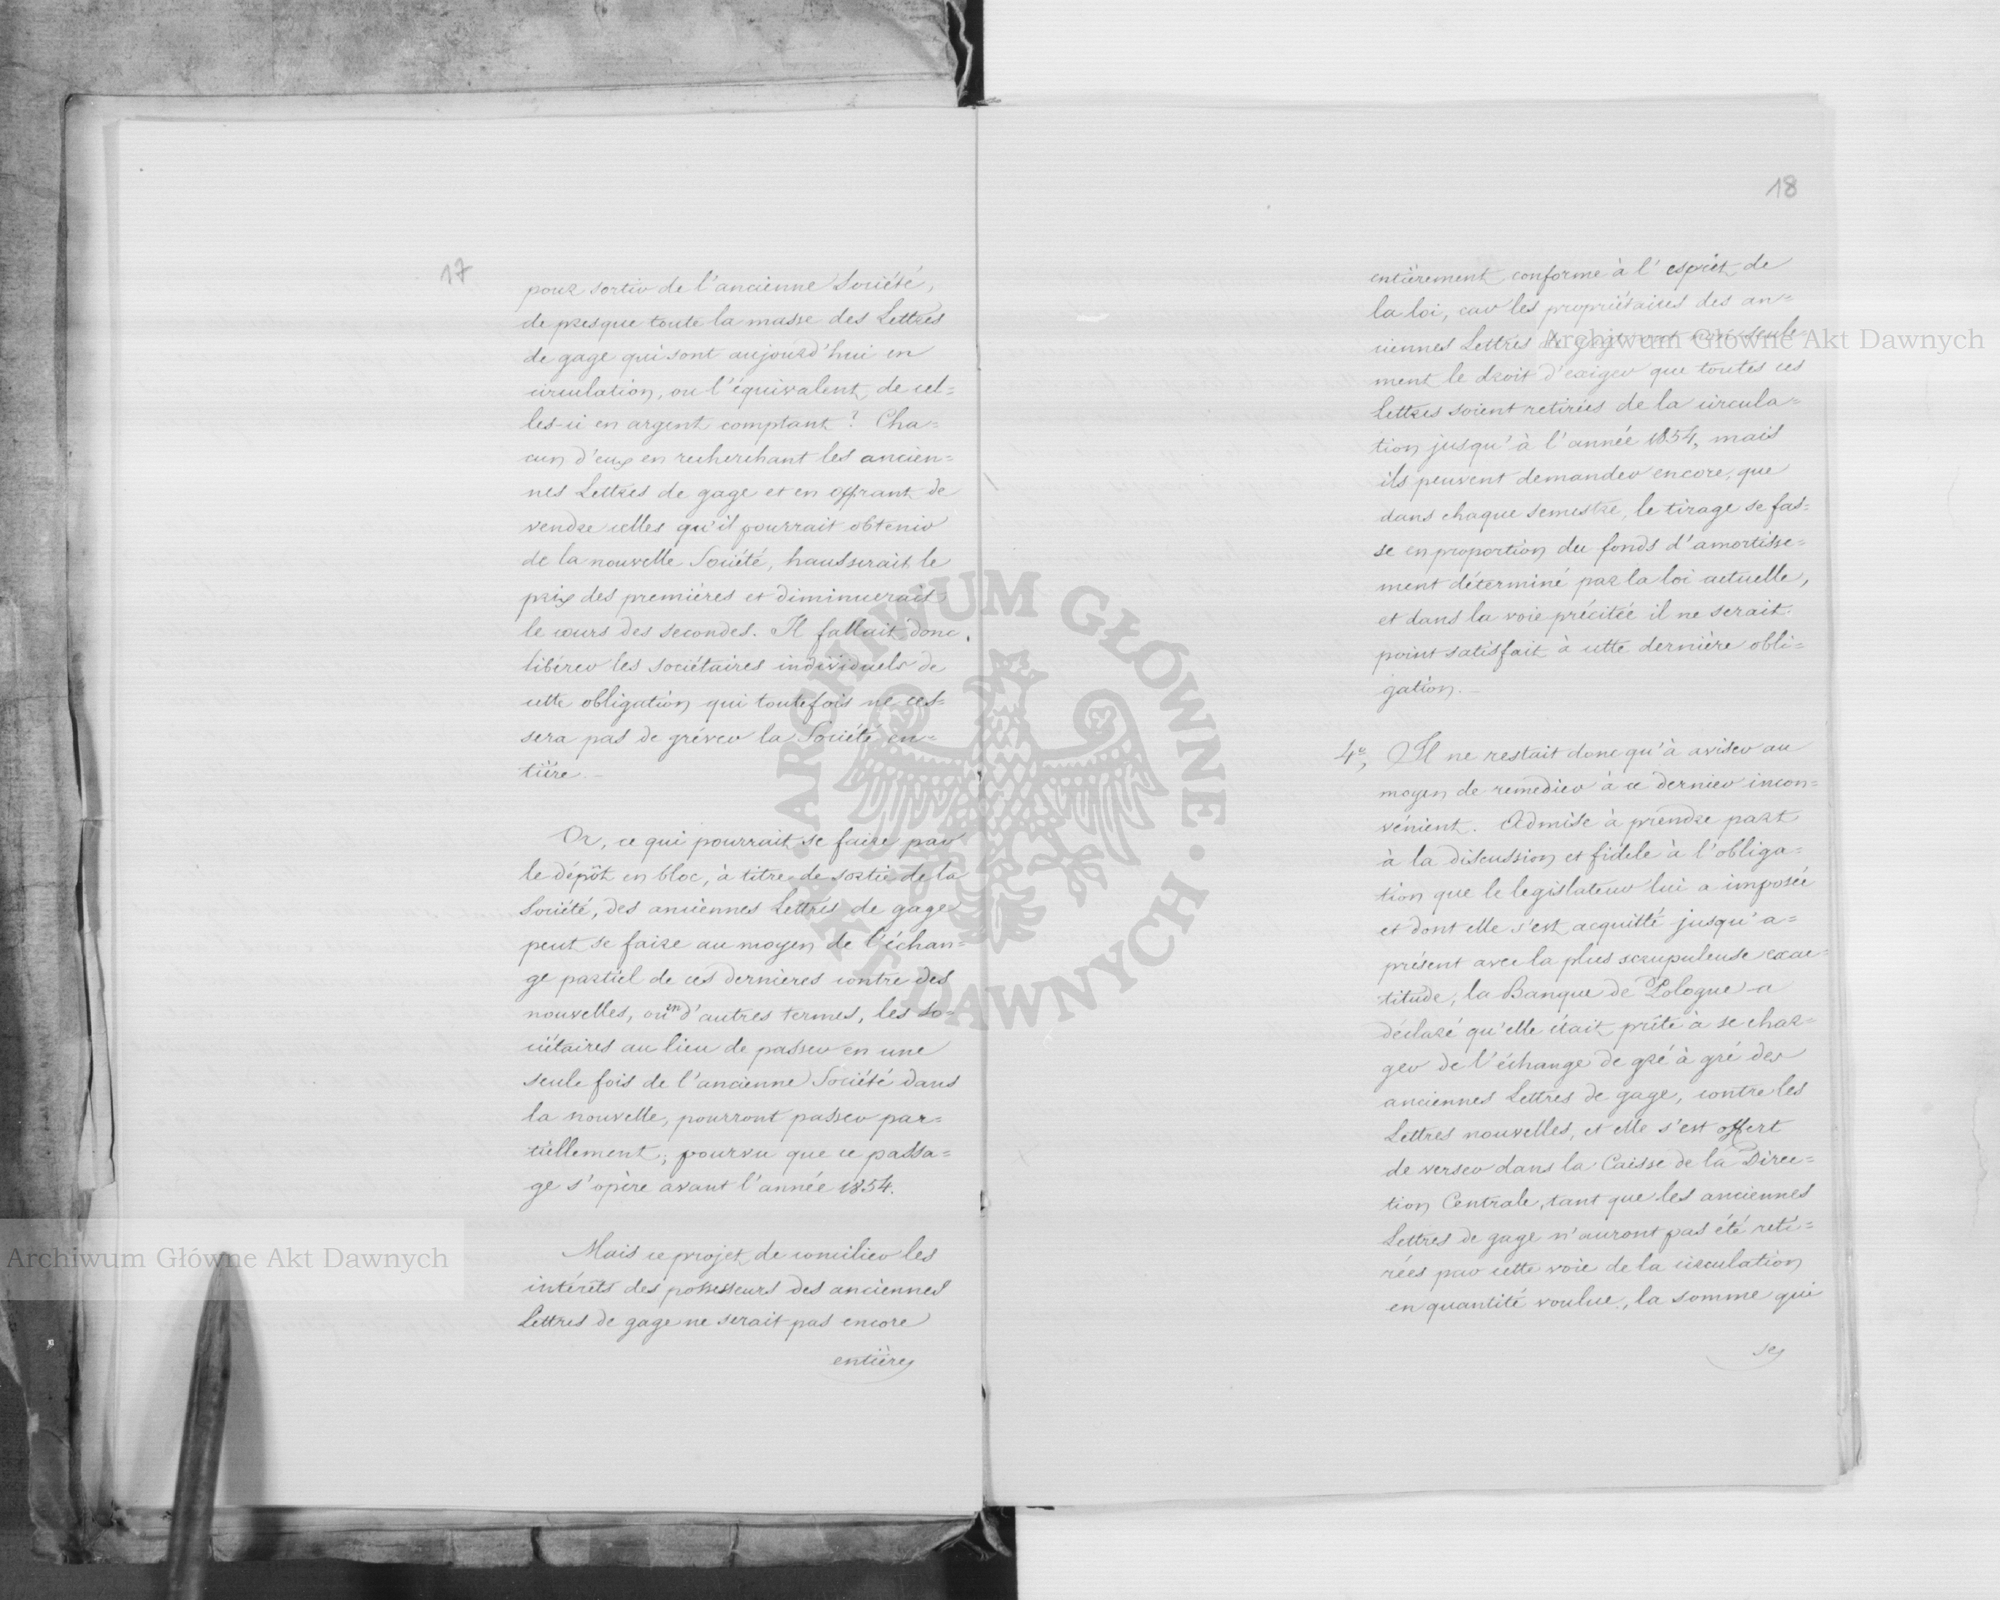 17
pour sortir de l'ancienne Société,
de presque toute la masse des Lettres
de gage qui sont aujourd'hui en
circulation, ou l'équivalent de cel=
les-ci en argent comptant? Cha=
cun d'eux en recherchant les ancien=
nes Lettres de gage et en offrant de
vendre celles qu'il pourrait obtenir
de la nouvelle Société, hausserait le
prix des premières et diminuerait
le cours des secondes. Il fallait donc
libérer les sociétaires individuels de
cette obligation qui toutefois ne ces=
sera pas de gréver la Société en=
tière. —
Or, ce qui pourrait se faire par
le dépôt en bloc, à titre de sortie de la
Société, des anciennes Lettres de gage
peut se faire au moyen de l'échan=
ge partiel de ces dernieres contre des
nouvelles, ou en d'autres termes, les so=
ciétaires au lieu de passer en une
seule fois de l'ancienne Société dans
la nouvelle, pourront passer par=
tiellement; pourvu que ce passa=
ge s'opère avant l'année 1854.
Mais ce projet de concilier les
intérêts des possesseurs des anciennes
Lettres de gage ne serait pas encore
entière
18
entièrement conforme à l'esprit de
la loi, car les propriétaires des an=
ciennes Lettres de gage ont non seule=
ment le droit d'exiger que toutes ces
Lettres soient retirées de la circula=
tion jusqu'à l'année 1854, mais
ils peuvent demander encore, que
dans chaque semestre, le tirage se fas=
se en proportion du fonds d'amortisse=
ment déterminé par la loi actuelle,
et dans la voie précitée il ne serait
point satisfait à cette dernière obli=
gation. —
4o, Il ne restait donc qu'à aviser au
moyen de remedier à ce dernier incon=
vénient. Admise à prendre part
à la discussion et fidele à l'obliga=
tion que le legislateur lui a imposée
et dont elle s'est acquitté jusqu'a=
présent avec la plus scrupuleuse exac=
titude, la Banque de Pologne a
déclaré qu'elle était prête à se char=
ger de l'échange de gré à gré des
anciennes Lettres de gage, contre les
Lettres nouvelles, et elle s'est offert
de verser dans la Caisse de la Direc=
tion Centrale, tant que les anciennes
Lettres de gage n'auront pas été reti=
rées par cette voie de la circulation
en quantité voulue, la somme qui
se
Archiwum Główne Akt Dawnych
Archiwum Główne Akt Dawnych
ARCHIWUM GŁÓWNE · AKT DAWNYCH ·